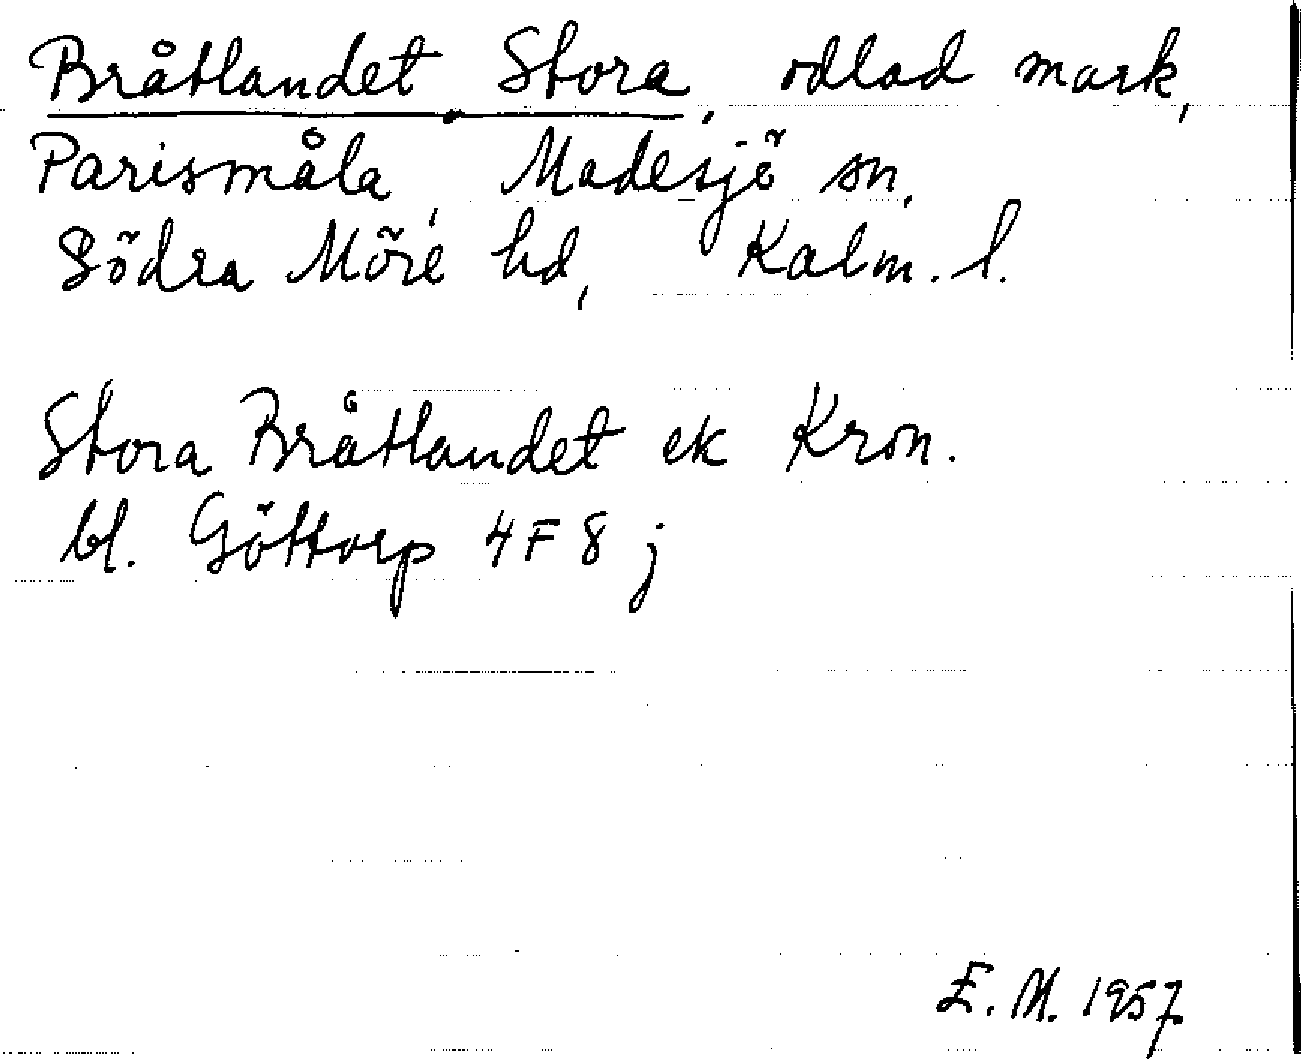 Bråtlandet, Stora, odlad mark,
Parismåla, Madesjö sn,
Södra Möre hd, Kalm. l.
Stora Bråtlandet ek Kron.
bl. Göttorp 4F8j
E. M. 1957